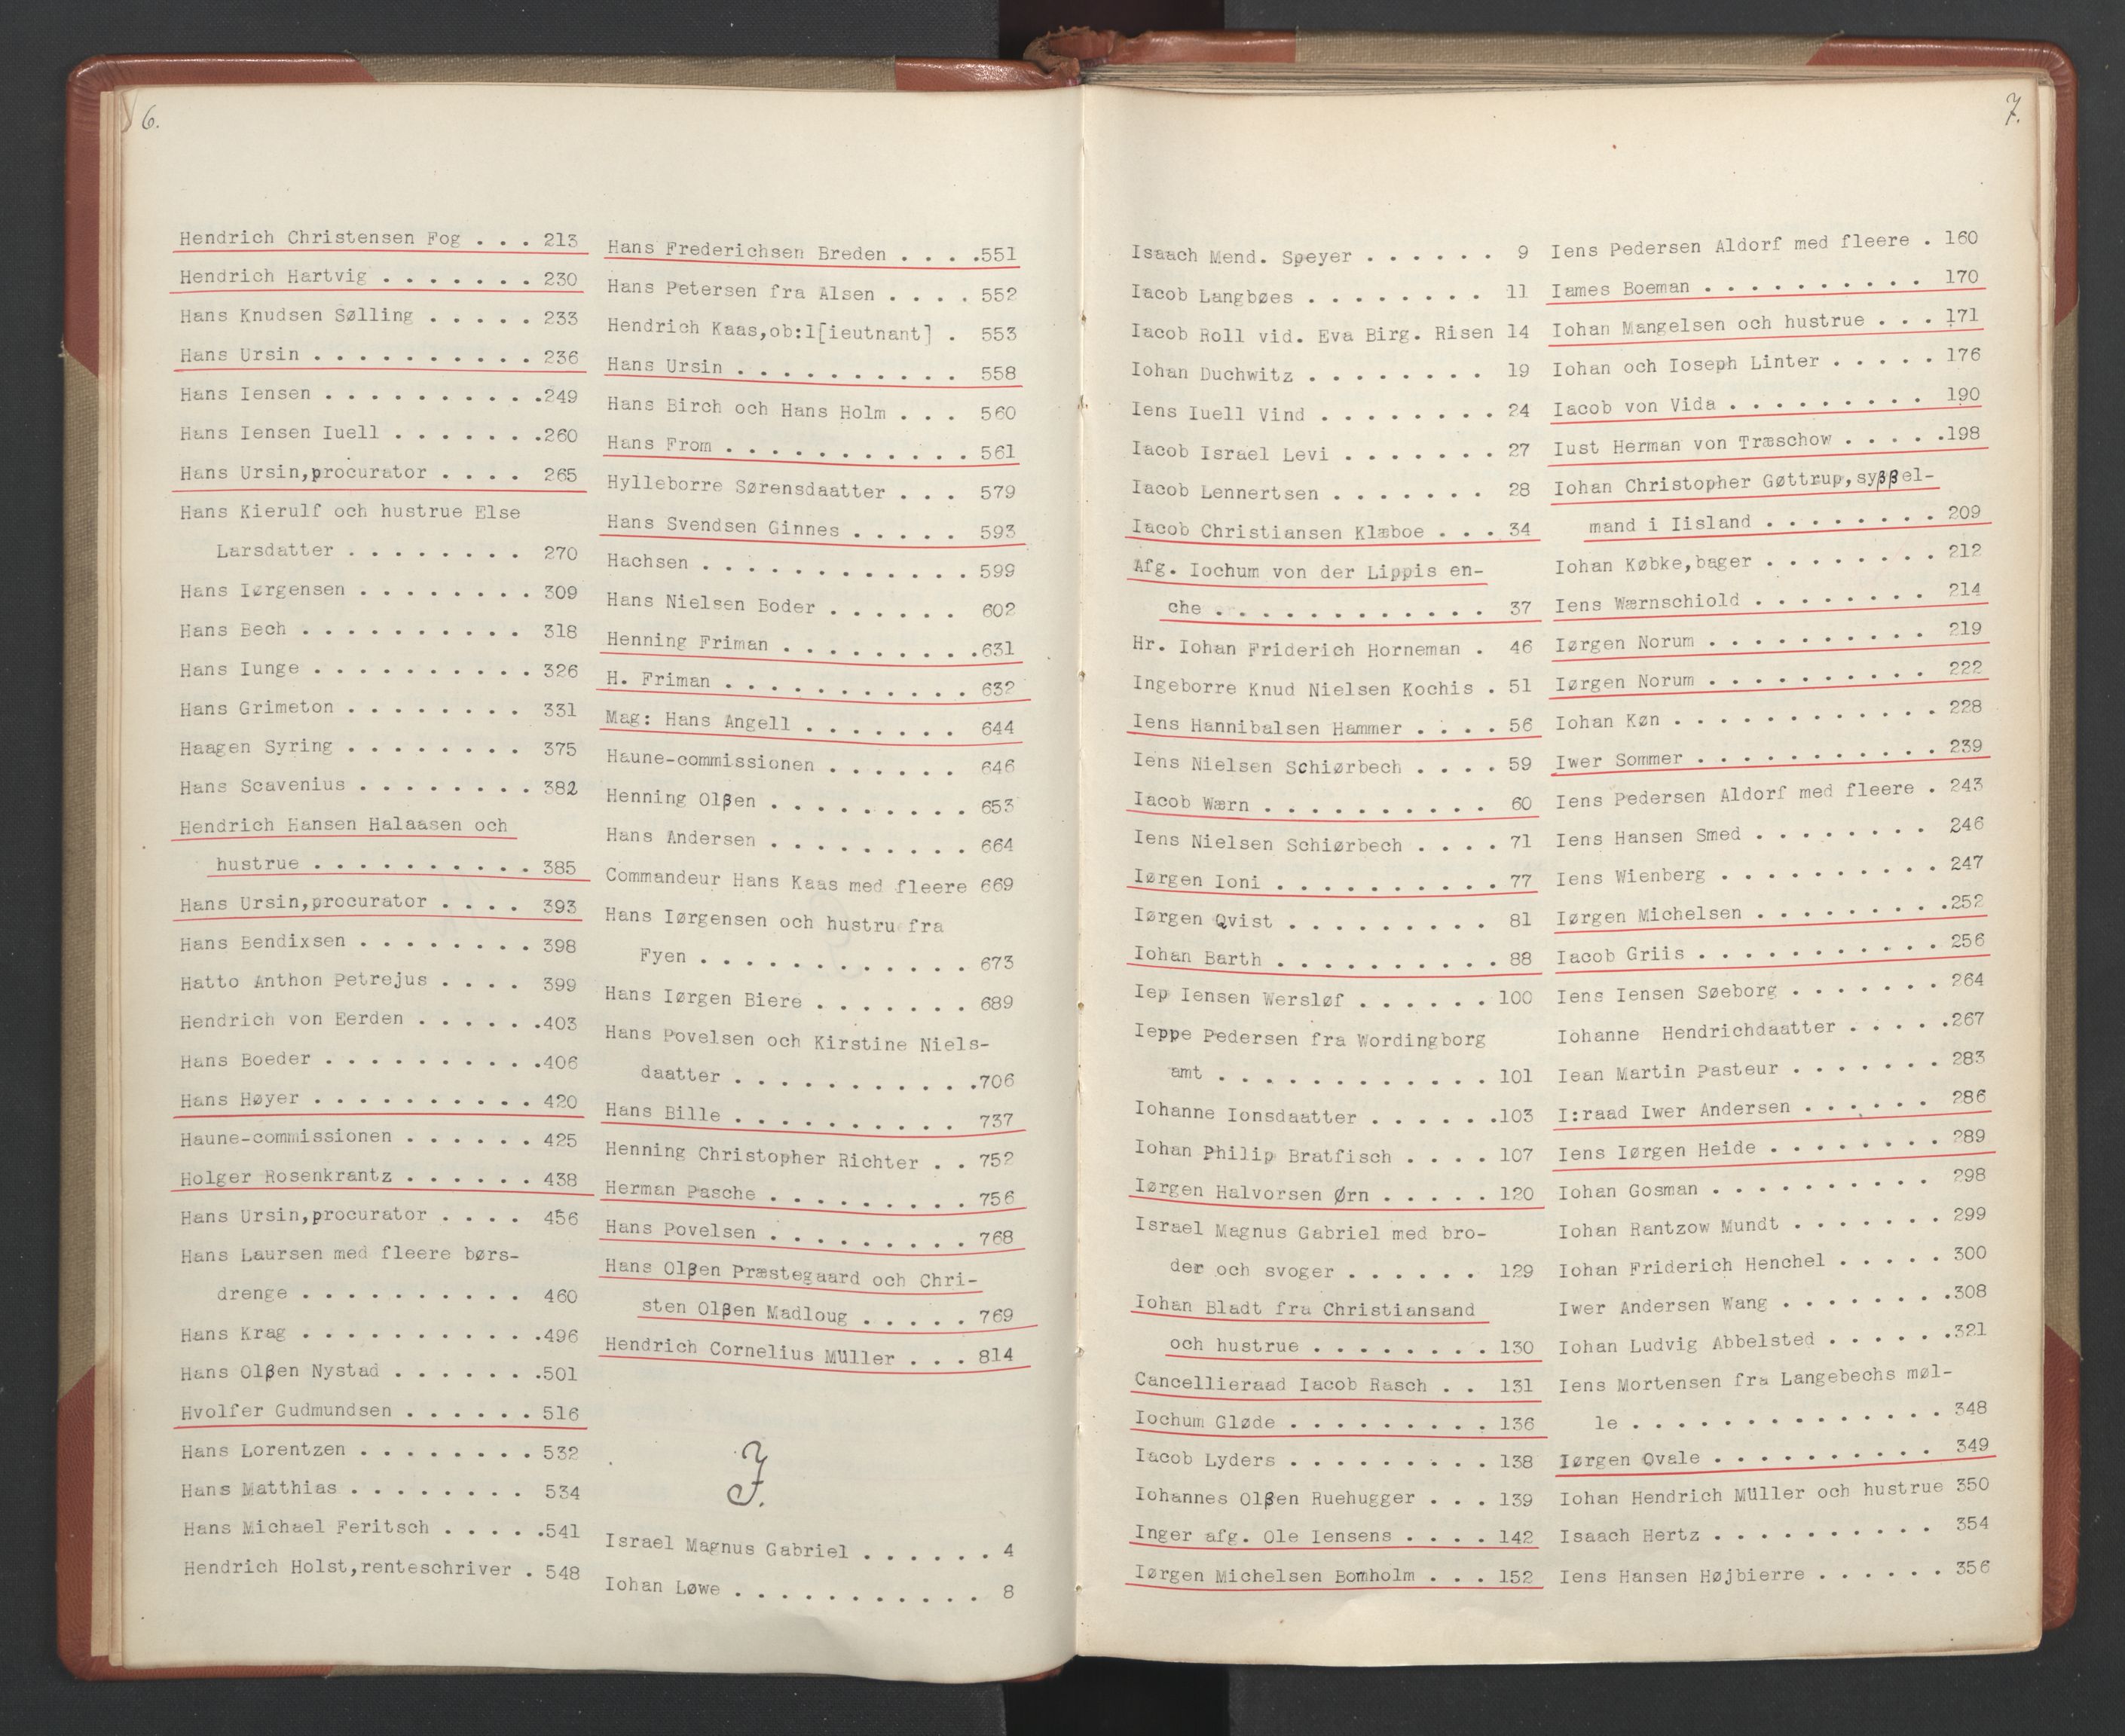 6.
Hendrich Christensen Fog . . . 213
Hendrich Hartvig . . . . . . . 230
Hans Knudsen Sølling . . . . . 233
Hans Ursin . . . . . . . . . . 236
Hans Iensen . . . . . . . . . .249
Hans Iensen Iuell . . . . . . .260
Hans Ursin,procurator . . . . 265
Hans Kierulf och hustrue Else
Larsdatter . . . . . . . . 270
Hans Iørgensen . . . . . . . . 309
Hans Bech . . . . . . . . . . 318
Hans Iunge . . . . . . . . . . 326
Hans Grimeton . . . . . . . . 331
Haagen Syring . . . . . . . . 375
Hans Scavenius . . . . . . . . 382
Hendrich Hansen Halaasen och
hustrue . . . . . . . . . . 385
Hans Ursin,procurator . . . . 393
Hans Bendixsen . . . . . . . . 398
Hatto Anthon Petrejus . . . . 399
Hendrich von Eerden . . . . . .403
Hans Boeder . . . . . . . . . .406
Hans Høyer . . . . . . . . . . 420
Haune-commissionen . . . . . . 425
Holger Rosenkrantz . . . . . . 438
Hans Ursin,procurator . . . . 456
Hans Laursen med fleere børs-
drenge . . . . . . . . . . 460
Hans Krag . . . . . . . . . . .496
Hans Olβen Nystad . . . . . . .501
Hvolfer Gudmundsen . . . . . . 516
Hans Lorentzen . . . . . . . . 532
Hans Matthias . . . . . . . . 534
Hans Michael Feritsch . . . . .541
Hendrich Holst,renteschriver . 548
Hans Frederichsen Breden . . . .551
Hans Petersen fra Alsen . . . . 552
Hendrich Kaas,ob:l[ieutnant] . 553
Hans Ursin . . . . . . . . . . 558
Hans Birch och Hans Holm . . . 560
Hans From . . . . . . . . . . . 561
Hylleborre Sørensdaatter . . . 579
Hans Svendsen Ginnes . . . . . 593
Hachsen . . . . . . . . . . . . 599
Hans Nielsen Boder . . . . . . 602
Henning Friman . . . . . . . . .631
H. Friman . . . . . . . . . . . 632
Mag: Hans Angell . . . . . . . 644
Haune-commissionen . . . . . . 646
Henning Olβen . . . . . . . . . 653
Hans Andersen . . . . . . . . . 664
Commandeur Hans Kaas med fleere 669
Hans Iørgensen och hustru fra
Fyen . . . . . . . . . . . . 673
Hans Iørgen Biere . . . . . . . 689
Hans Povelsen och Kirstine Niels-
daatter . . . . . . . . . . .706
Hans Bille . . . . . . . . . . 737
Henning Christopher Richter . . 752
Herman Pasche . . . . . . . . . 756
Hans Povelsen . . . . . . . . . 768
Hans Olβen Præstegaard och Chri-
sten Olβen Madloug . . . . . 769
Hendrich Cornelius Müller . . . 814
J.
Israel Magnus Gabriel . . . . . . 4
Iohan Løwe . . . . . . . . . . . 8
7.
Isaach Mend. Speyer . . . . . . 9
Iacob Langbøes . . . . . . . . 11
Iacob Roll vid. Eva Birg. Risen 14
Iohan Duchwitz . . . . . . . . 19
Iens Iuell Vind . . . . . . . . 24
Iacob Israel Levi . . . . . . . 27
Iacob Lennertsen . . . . . . . 28
Iacob Christiansen Klæboe . . . 34
Afg. Iochum von der Lippis en-
che . . . . . . . . . . . . 37
Hr. Iohan Friderich Horneman . 46
Ingeborre Knud Nielsen Kochis . 51
Iens Hannibalsen Hammer . . . . 56
Iens Nielsen Schiørbech . . . . 59
Iacob Wærn . . . . . . . . . . 60
Iens Nielsen Schiørbech . . . . 71
Iørgen Ioni . . . . . . . . . . 77
Iørgen Qvist . . . . . . . . . 81
Iohan Barth . . . . . . . . . . 88
Iep Iensen Wersløf . . . . . . 100
Ieppe Pedersen fra Wordingborg
amt . . . . . . . . . . . . 101
Iohanne Ionsdaatter . . . . . .103
Iohan Philip Bratfisch . . . . 107
Iørgen Halvorsen Ørn . . . . . 120
Israel Magnus Gabriel med bro-
der och svoger . . . . . . 129
Iohan Bladt fra Christiansand
och hustrue . . . . . . . . 130
Cancellieraad Iacob Rasch . . 131
Iochum Gløde . . . . . . . . . 136
Iacob Lyders . . . . . . . . . 138
Iohannes Olβen Ruehugger . . . 139
Inger afg. Ole Iensens . . . . 142
Iørgen Michelsen Bomholm . . . 152
Iens Pedersen Aldorf med fleere . 160
Iames Boeman . . . . . . . . . . 170
Iohan Mangelsen och hustrue . . . 171
Iohan och Ioseph Linter . . . . . 176
Iacob von Vida . . . . . . . . . 190
Iust Herman von Træschow . . . . .198
Iohan Christopher Gøttrup,syββel-
mand i Iisland . . . . . . . . 209
Iohan Købke,bager . . . . . . . . 212
Iens Wærnschiold . . . . . . . . 214
Iørgen Norum . . . . . . . . . . 219
Iørgen Norum . . . . . . . . . . 222
Iohan Køn . . . . . . . . . . . . 228
Iwer Sommer . . . . . . . . . . . 239
Iens Pedersen Aldorf med fleere . 243
Iens Hansen Smed . . . . . . . . 246
Iens Wienberg . . . . . . . . . . 247
Iørgen Michelsen . . . . . . . . .252
Iacob Griis . . . . . . . . . . . 256
Iens Iensen Søeborg . . . . . . . 264
Iohanne Hendrichdaatter . . . . .267
Iean Martin Pasteur . . . . . . . 283
I:raad Iwer Andersen . . . . . . 286
Iens Iørgen Heide . . . . . . . . 289
Iohan Gosman . . . . . . . . . . 298
Iohan Rantzow Mundt . . . . . . . 299
Iohan Friderich Henchel . . . . . 300
Iwer Andersen Wang . . . . . . . .308
Iohan Ludvig Abbelsted . . . . . .321
Iens Mortensen fra Langebechs møl-
le . . . . . . . . . . . . . . 348
Iørgen Ovale . . . . . . . . . . 349
Iohan Hendrich Müller och hustrue 350
Isaach Hertz . . . . . . . . . . 354
Iens Hansen Højbierre . . . . . . 356